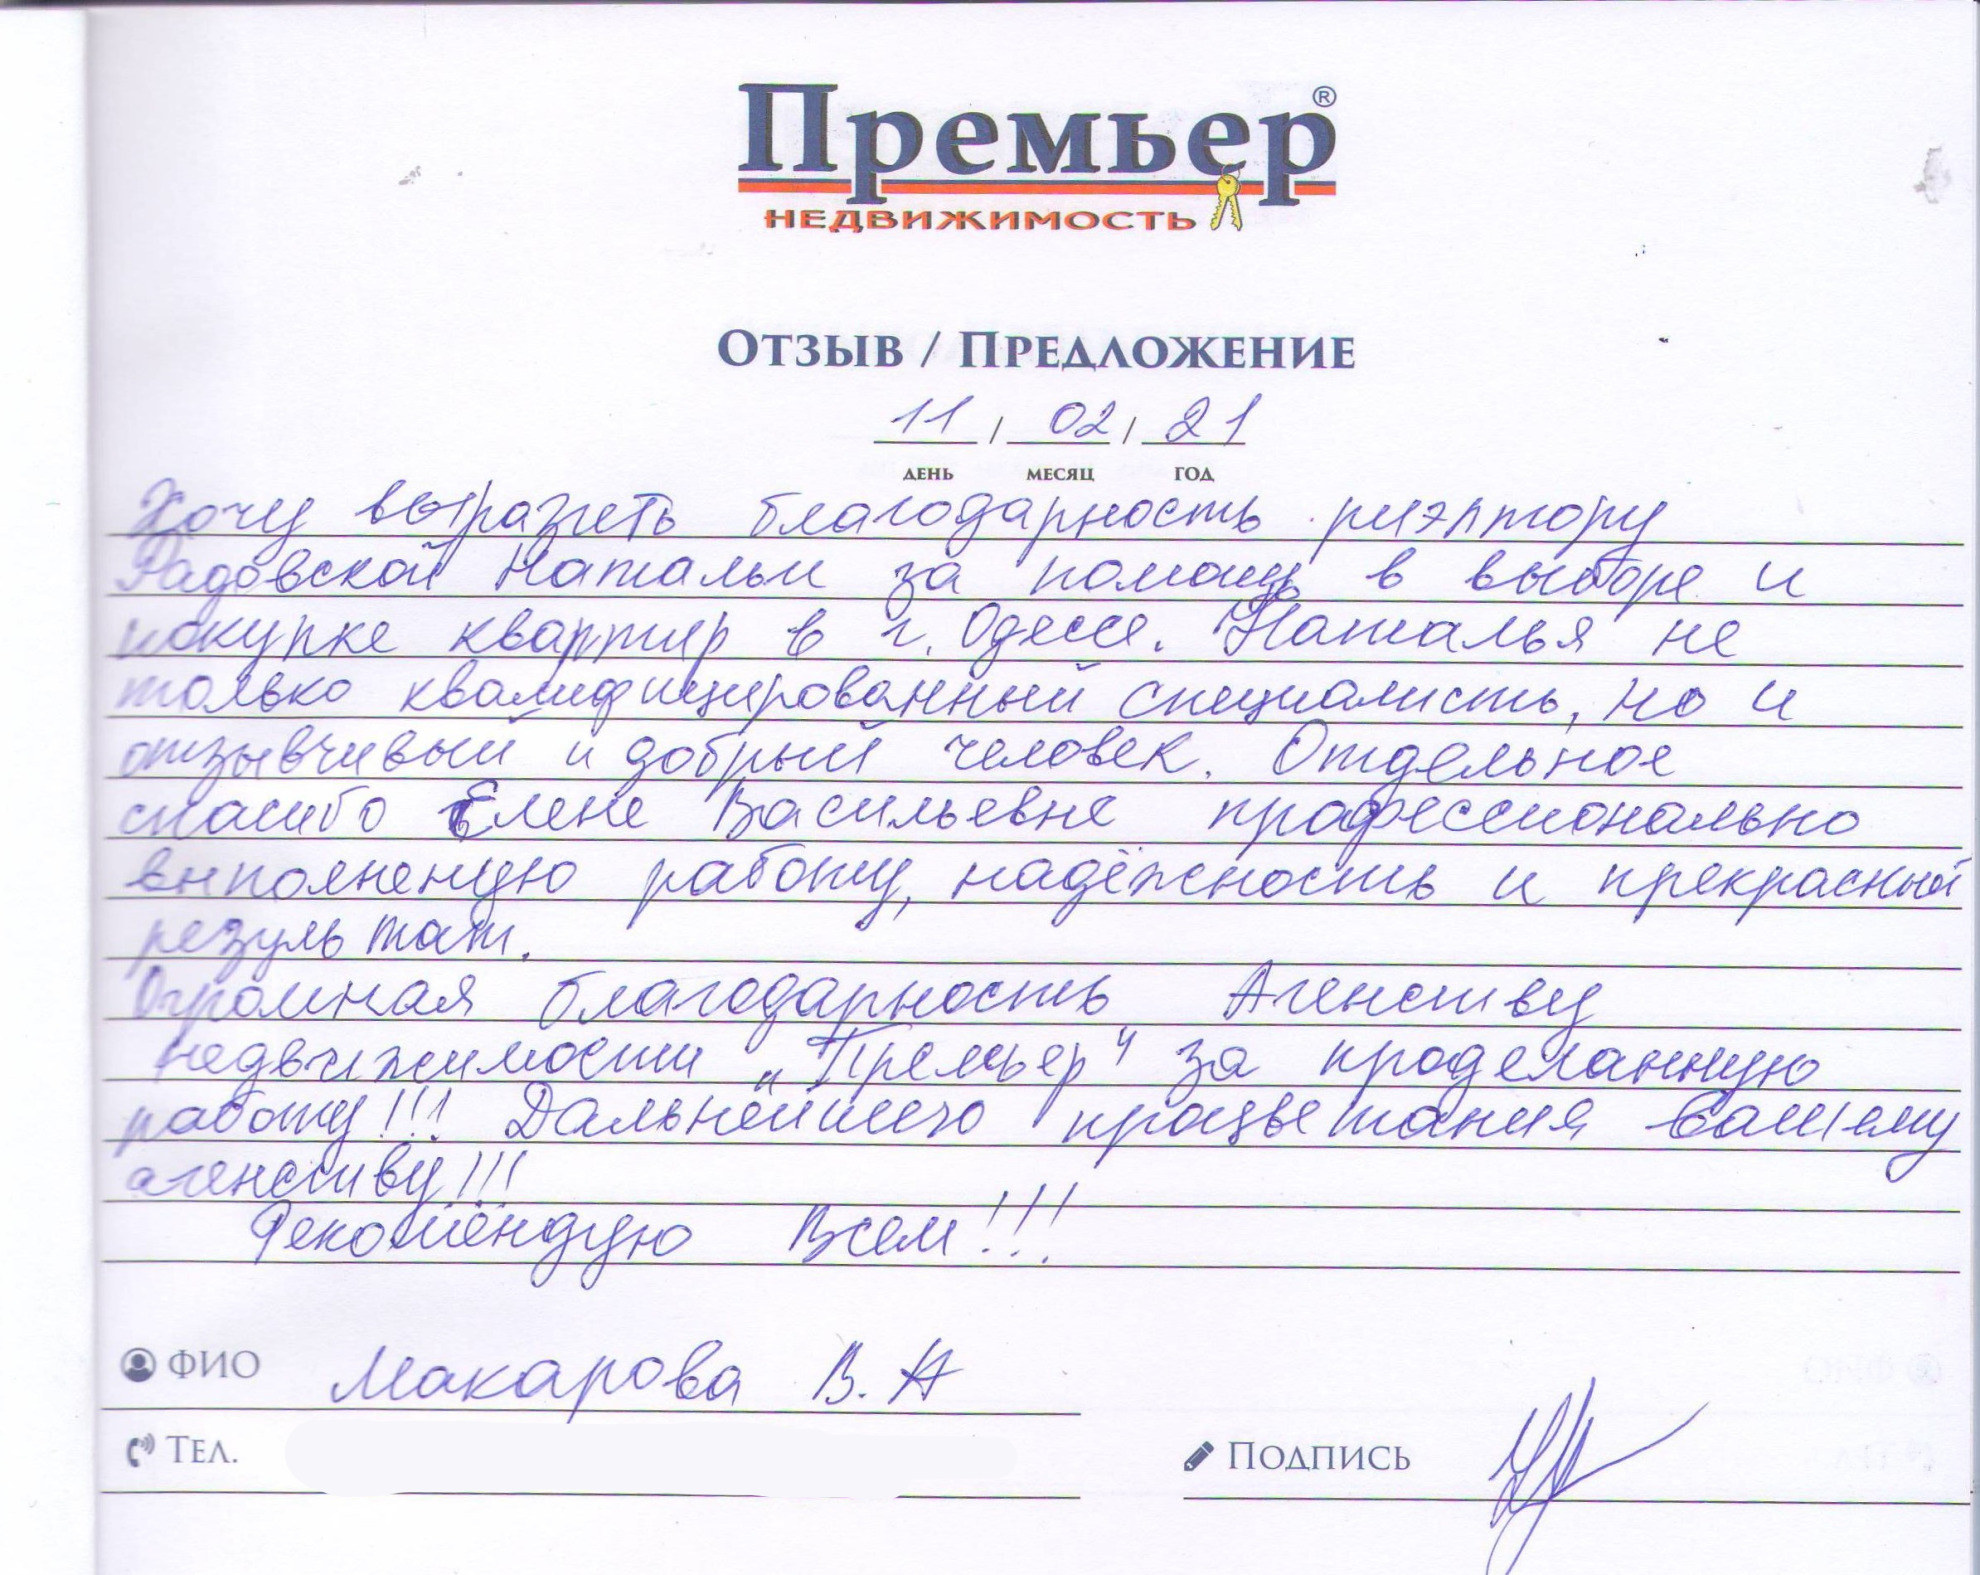 Премьер®
НЕДВИЖИМОСТЬ
ОТЗЫВ / ПРЕДЛОЖЕНИЕ
11 / 02 / 21
ДЕНЬ МЕСЯЦ ГОД
Хочу выразить благодарность риэлтору
Радовской Натальи за помощь в выборе и
покупке квартир в г. Одессе. Наталья не
только квалифицированный специалисть, но и
отзывчивый и добрый человек. Отдельное
спасибо Елене Васильевне профессионально
выполненую работу, надёжность и прекрасный
результат.
Огромная благодарность Агенству
недвижимости „Премьер" за проделанную
работу!!! Дальнейшего процветания вашему
агенству!!!
Рекомендую Всем!!!
ФИО Макарова В. А
ТЕЛ.
ПОДПИСЬ